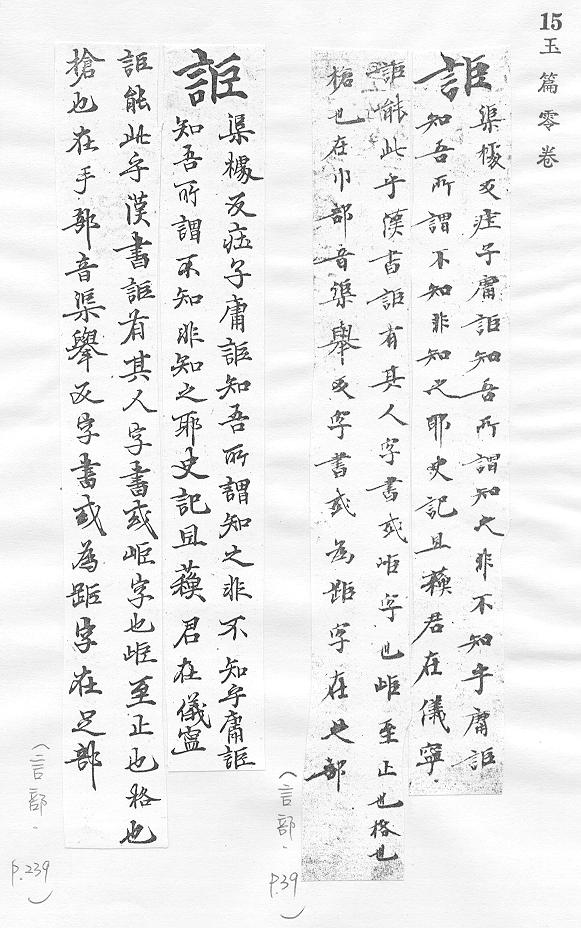 15
玉篇零卷
詎
渠據反疰子庸詎知吾所謂知之非不知乎庸詎
知吾所謂不知非知之耶史記且蘓君在儀寧
詎能此乎漢書詎有其人字書或岠字也岠至止也格也
槍也在巾部音渠舉反字書或為距字在足部
(言部.
p.39)
詎
渠據反疰子庸詎知吾所謂知之非不知乎庸詎
知吾所謂不知非知之耶史記且蘓君在儀寧
詎能此乎漢書詎有其人字書或岠字也岠至止也格也
槍也在手部音渠舉反字書或為距字在足部
(言部.
p.239)